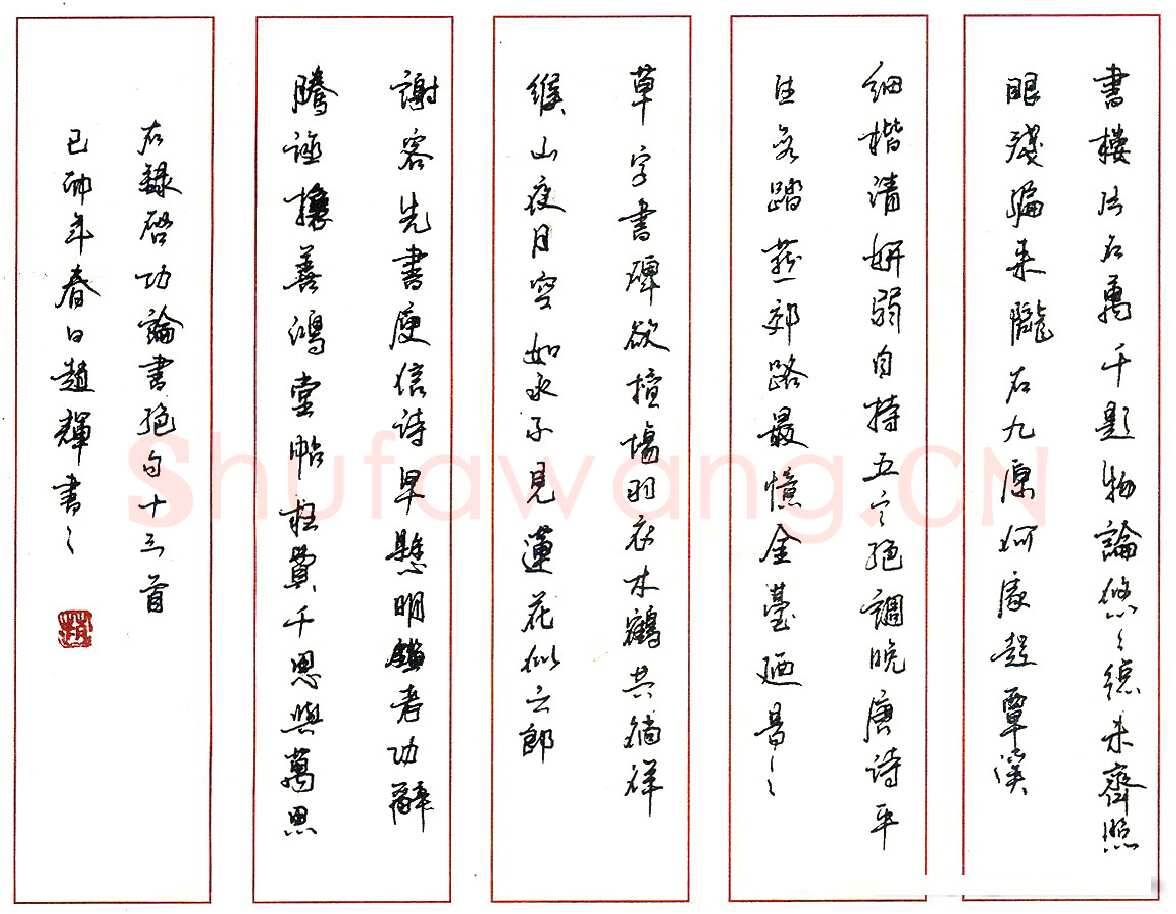 書樓片石萬千題物論悠々總未齊照
眼殘編來隴右九原何處起覃溪
細楷清妍弱自持五言絕調晚唐詩平
生每踏燕郊路最憶金臺廼易之
草字書碑欲擅場羽衣木鶴共徜徉
緱山夜月空如水不見蓮花似六郎
謝客先書庾信詩早懸明鑑考功辭
騰誣攘善鴻堂帖枉費千思與萬思
右錄啓功論書絕句十三首
己卯年春日趙輝書之
Shufawang.CN